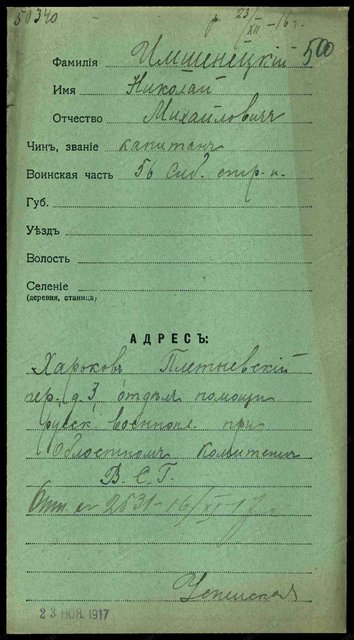 50340
р. 23/XII-16 г.
500
Фамилія Имшенецкій
Имя Николай
Отчество Михайловичъ
Чинъ, званіе капитанъ
Воинская часть 56 Сиб. стр. п.
Губ.
Уѣздъ
Волость
Селеніе
(деревня, станица)
АДРЕСЪ:
Харьковъ Плетневскій
пер. д. 3, отдѣлъ помощи
русск. военнопл. при
Областномъ Комитетѣ
В. С. Г.
Отп. № 2631-16/XI-17 г.
23 НОЯ. 1917